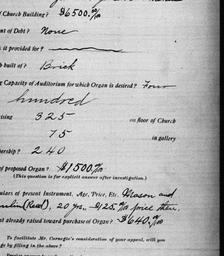 of Church Building? $6500.00/xx
nt of Debt? None
is it provided for?
built of? Brick
ng Capacity of Auditorium for which Organ is desired? Four
hundred
ising 325 on floor of Church
75 in gallery
bership? 240
of proposed Organ? $1500.00/xx
(This question is for explicit answer after investigation.)
ulars of present Instrument, Age, Price, Etc. Mason and
mlin (Reed), 20 yrs. $125.00/xx price then.
nt already raised toward purchase of Organ? $640.00/xx
To facilitate Mr. Carnegie's consideration of your appeal, will you
ge by filling in the above?